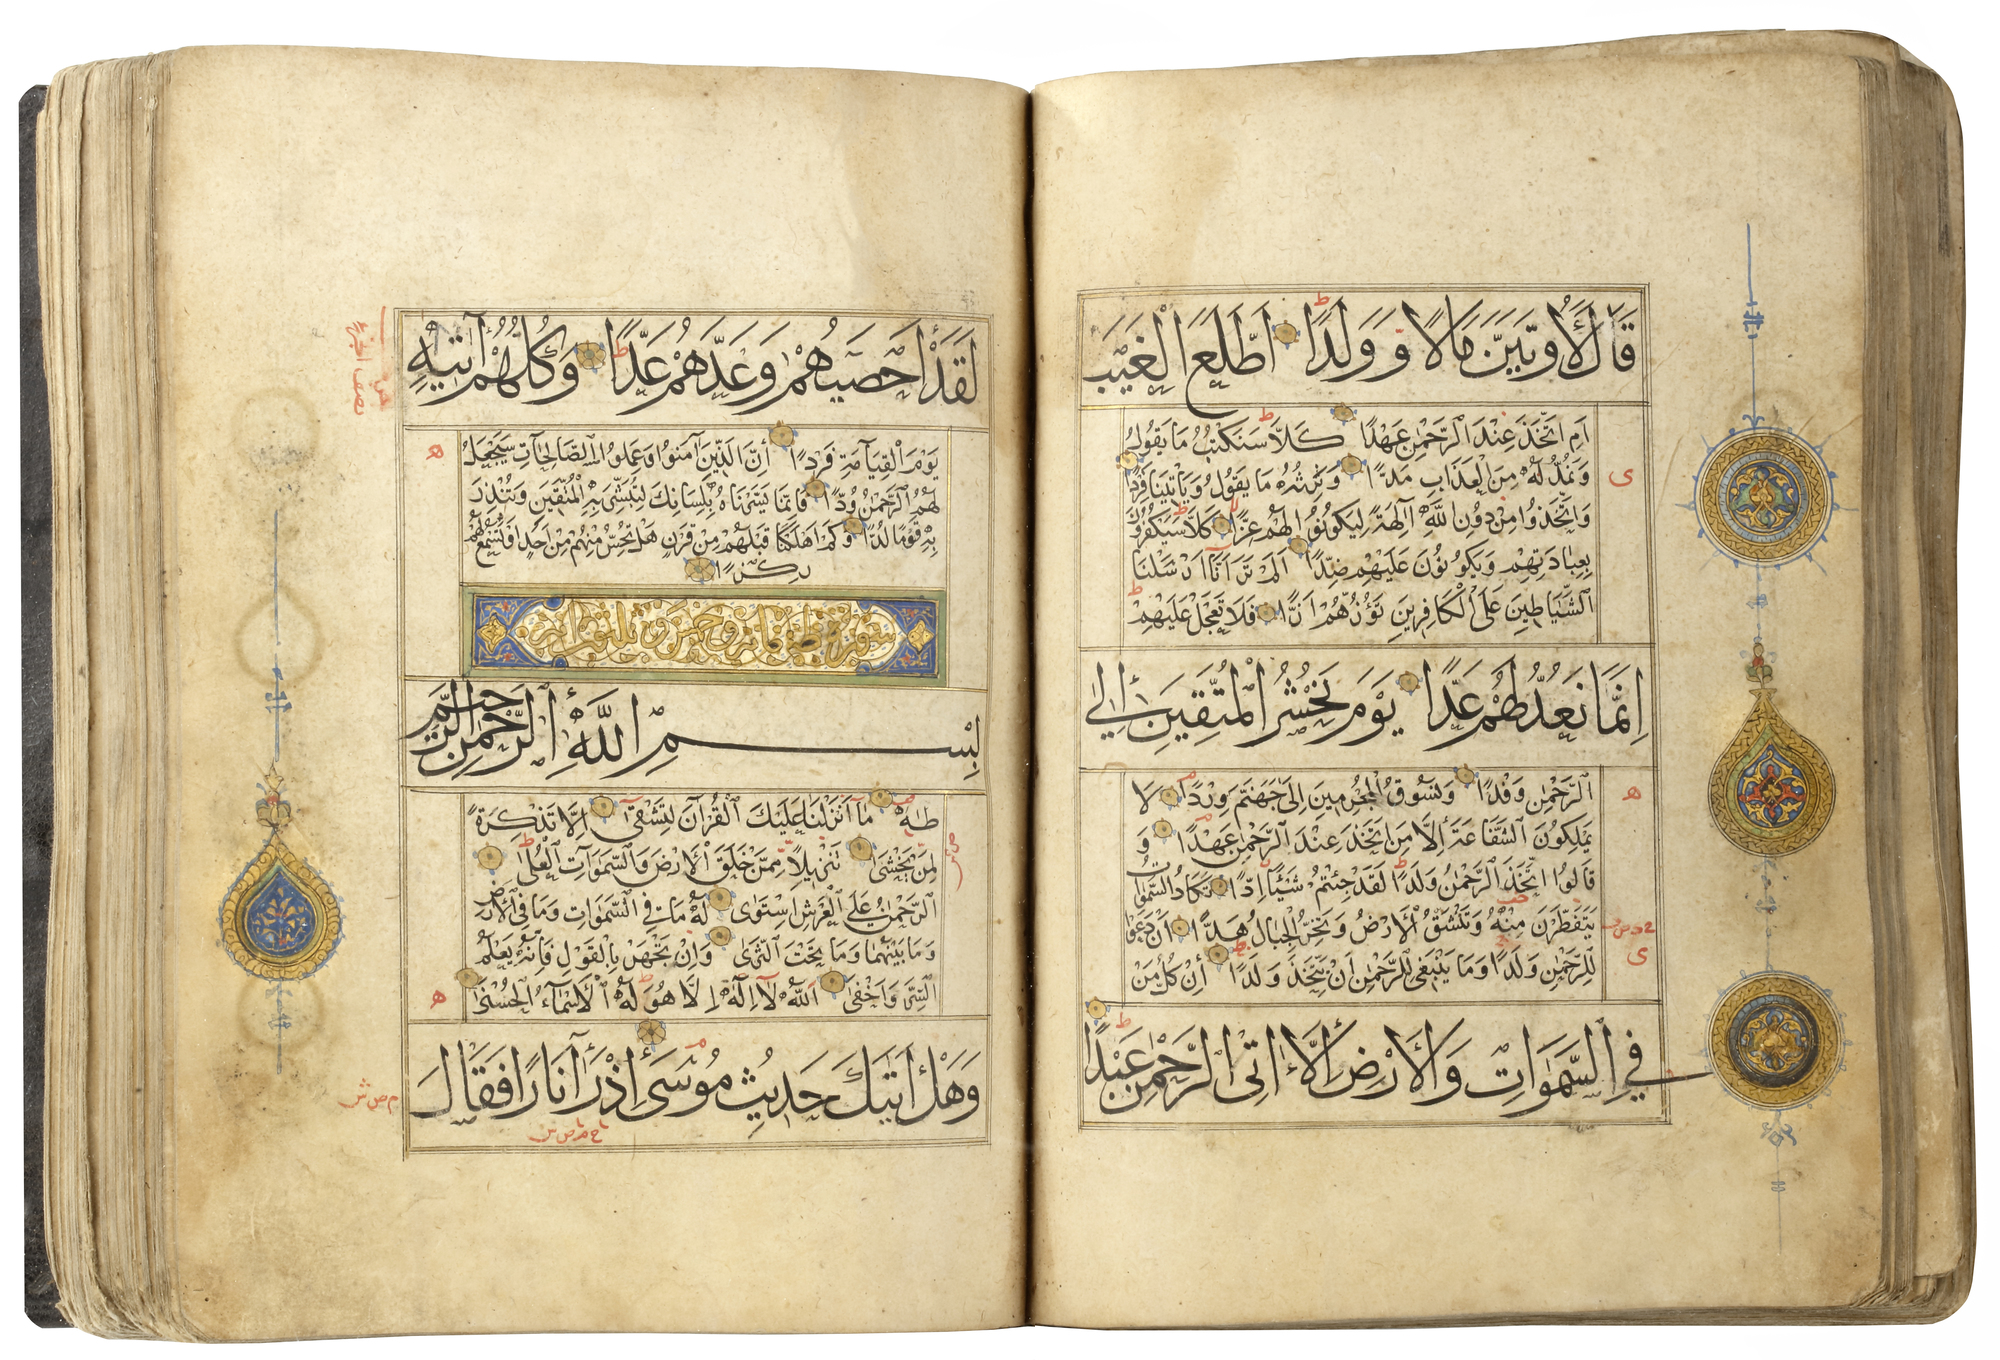 قَالَ لَأُوتَيَنَّ مَالًا وَوَلَدًا اَطَّلَعَ الْغَيْبَ
اَمِ اتَّخَذَ عِنْدَ الرَّحْمٰنِ عَهْدًا كَلَّا سَنَكْتُبُ مَا يَقُولُ
وَنَمُدُّ لَهُ مِنَ الْعَذَابِ مَدًّا وَنَرِثُهُ مَا يَقُولُ وَيَاْتِينَا فَرْدًا
وَاتَّخَذُوا مِنْ دُونِ اللّٰهِ اٰلِهَةً لِيَكُونُوا لَهُمْ عِزًّا كَلَّا سَيَكْفُرُونَ
بِعِبَادَتِهِمْ وَيَكُونُونَ عَلَيْهِمْ ضِدًّا اَلَمْ تَرَ اَنَّا اَرْسَلْنَا
الشَّيَاطِينَ عَلَى الْكَافِرِينَ تَؤُزُّهُمْ اَزًّا فَلَا تَعْجَلْ عَلَيْهِمْ
اِنَّمَا نَعُدُّ لَهُمْ عَدًّا يَوْمَ نَحْشُرُ الْمُتَّقِينَ اِلَى
الرَّحْمٰنِ وَفْدًا وَنَسُوقُ الْمُجْرِمِينَ اِلٰى جَهَنَّمَ وِرْدًا لَا
يَمْلِكُونَ الشَّفَاعَةَ اِلَّا مَنِ اتَّخَذَ عِنْدَ الرَّحْمٰنِ عَهْدًا وَ
قَالُوا اتَّخَذَ الرَّحْمٰنُ وَلَدًا لَقَدْ جِئْتُمْ شَيْئًا اِدًّا تَكَادُ السَّمٰوَاتُ
يَتَفَطَّرْنَ مِنْهُ وَتَنْشَقُّ الْاَرْضُ وَتَخِرُّ الْجِبَالُ هَدًّا اَنْ دَعَوْا
لِلرَّحْمٰنِ وَلَدًا وَمَا يَنْبَغِي لِلرَّحْمٰنِ اَنْ يَتَّخِذَ وَلَدًا اِنْ كُلُّ مَنْ
فِي السَّمٰوَاتِ وَالْاَرْضِ اِلَّا اٰتِى الرَّحْمٰنِ عَبْدًا
لَقَدْ اَحْصٰيهُمْ وَعَدَّهُمْ عَدًّا وَكُلُّهُمْ اٰتِيهِ
يَوْمَ الْقِيَامَةِ فَرْدًا اِنَّ الَّذِينَ اٰمَنُوا وَعَمِلُوا الصَّالِحَاتِ سَيَجْعَلُ
لَهُمُ الرَّحْمٰنُ وُدًّا فَاِنَّمَا يَسَّرْنَاهُ بِلِسَانِكَ لِتُبَشِّرَ بِهِ الْمُتَّقِينَ وَتُنْذِرَ
بِهِ قَوْمًا لُدًّا وَكَمْ اَهْلَكْنَا قَبْلَهُمْ مِنْ قَرْنٍ هَلْ تُحِسُّ مِنْهُمْ مِنْ اَحَدٍ اَوْ تَسْمَعُ لَهُمْ
رِكْزًا
سورة طه مائة وخمس وثلثون اية
بِسْمِ اللّٰهِ الرَّحْمٰنِ الرَّحِيمِ
طٰهٰ مَا اَنْزَلْنَا عَلَيْكَ الْقُرْاٰنَ لِتَشْقٰى اِلَّا تَذْكِرَةً
لِمَنْ يَخْشٰى تَنْزِيلًا مِمَّنْ خَلَقَ الْاَرْضَ وَالسَّمٰوَاتِ الْعُلٰى
الرَّحْمٰنُ عَلَى الْعَرْشِ اسْتَوٰى لَهُ مَا فِي السَّمٰوَاتِ وَمَا فِي الْاَرْضِ
وَمَا بَيْنَهُمَا وَمَا تَحْتَ الثَّرٰى وَاِنْ تَجْهَرْ بِالْقَوْلِ فَاِنَّهُ يَعْلَمُ
السِّرَّ وَاَخْفٰى اَللّٰهُ لَا اِلٰهَ اِلَّا هُوَ لَهُ الْاَسْمَاءُ الْحُسْنٰى
وَهَلْ اَتٰيكَ حَدِيثُ مُوسٰى اِذْ رَاٰ نَارًا فَقَالَ